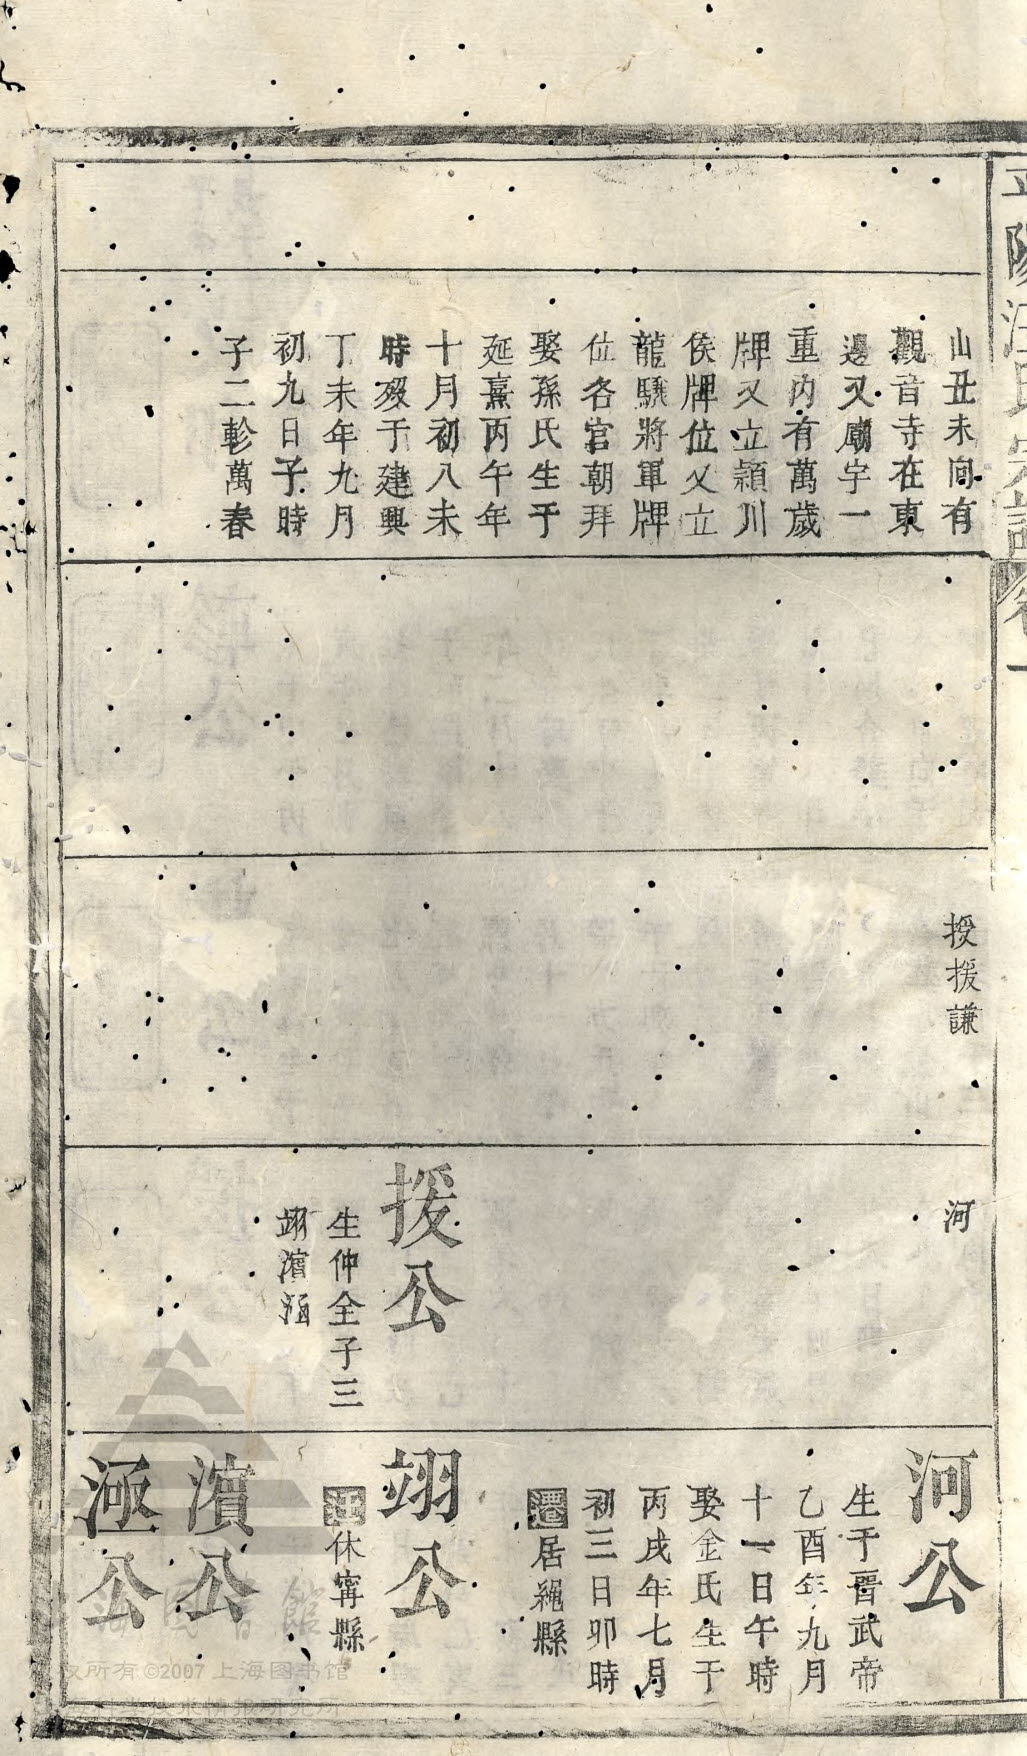 平陽汪氏宗譜 卷一
山丑未向有
觀音寺在東
邊又廟宇一
重內有萬歲
牌又立潁川
侯牌位又立
龍驤將軍牌
位各官朝拜
娶孫氏生于
延熹丙午年
十月初八未
時歿于建興
丁未年九月
初九日子時
子二軫萬春
授援謙
河
援公
生仲全子三
翊濵
河公
生于晋武帝
乙酉年九月
十一日午時
娶金氏生于
丙戌年七月
初三日卯時
遷居繩縣
翊公
住休寧縣
濵公
極公
版权所有©2007上海图书馆